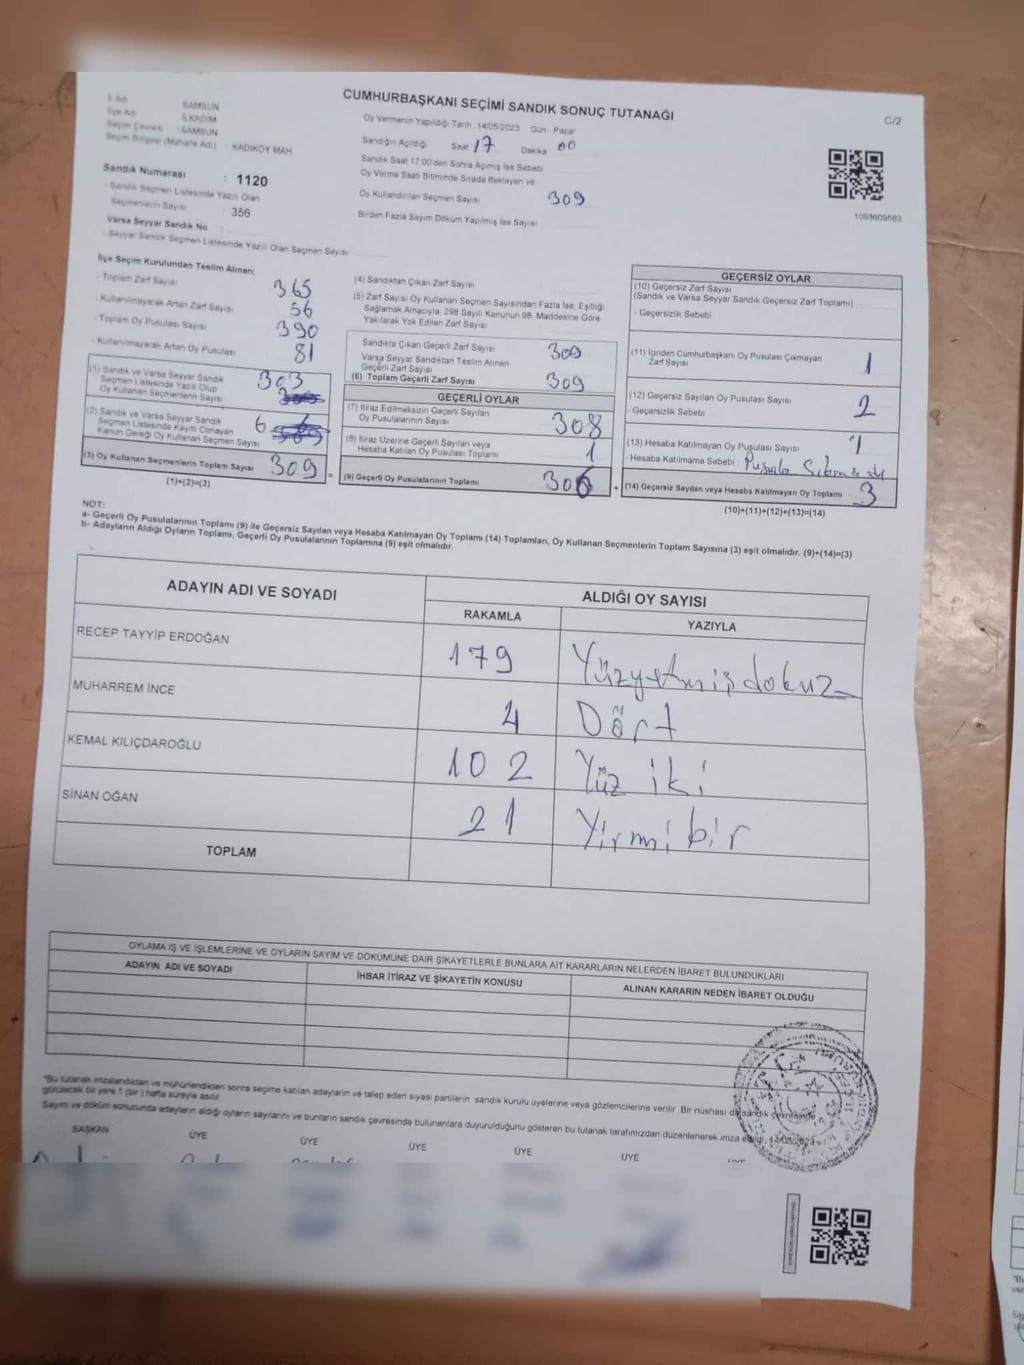 CUMHURBAŞKANI SEÇİMİ SANDIK SONUÇ TUTANAĞI
C/2
İl Adı SAMSUN
İlçe Adı İLKADIM
Seçim Çevresi : SAMSUN
Seçim Bölgesi (Mahalle Adı) : KADIKÖY MAH
Sandık Numarası : 1120
- Sandık Seçmen Listesinde Yazılı Olan
Seçmenlerin Sayısı : 356
Varsa Seyyar Sandık No :
- Seyyar Sandık Seçmen Listesinde Yazılı Olan Seçmen Sayısı
Oy Vermenin Yapıldığı Tarih :14/05/2023 Gün Pazar
Sandığın Açıldığı Saat 17 Dakika 00
Sandık Saat 17:00'den Sonra Açılmış İse Sebebi
Oy Verme Saati Bitiminde Sırada Bekleyen ve
Oy Kullandırılan Seçmen Sayısı 309
Birden Fazla Sayım Döküm Yapılmış İse Sayısı
1093609583
İlçe Seçim Kurulundan Teslim Alınan;
- Toplam Zarf Sayısı 365
- Kullanılmayarak Artan Zarf Sayısı 56
- Toplam Oy Pusulası Sayısı 390
- Kullanılmayarak Artan Oy Pusulası 81
(1) Sandık ve Varsa Seyyar Sandık
Seçmen Listesinde Yazılı Olup
Oy Kullanan Seçmenlerin Sayısı 303
(2) Sandık ve Varsa Seyyar Sandık
Seçmen Listesinde Kayıtlı Olmayan
Kanun Gereği Oy Kullanan Seçmen Sayısı 6
(3) Oy Kullanan Seçmenlerin Toplam Sayısı 309 =
(1)+(2)=(3)
(4) Sandıktan Çıkan Zarf Sayısı
(5) Zarf Sayısı Oy Kullanan Seçmen Sayısından Fazla İse, Eşitliği
Sağlamak Amacıyla, 298 Sayılı Kanunun 98. Maddesine Göre
Yakılarak Yok Edilen Zarf Sayısı
Sandıkta Çıkan Geçerli Zarf Sayısı 309
Varsa Seyyar Sandıktan Teslim Alınan
Geçerli Zarf Sayısı
(6) Toplam Geçerli Zarf Sayısı 309
GEÇERLİ OYLAR
(7) İtiraz Edilmeksizin Geçerli Sayılan
Oy Pusulalarının Sayısı 308
(8) İtiraz Üzerine Geçerli Sayılan veya
Hesaba Katılan Oy Pusulası Toplamı 1
(9) Geçerli Oy Pusulalarının Toplamı 306 +
GEÇERSİZ OYLAR
(10) Geçersiz Zarf Sayısı
(Sandık ve Varsa Seyyar Sandık Geçersiz Zarf Toplamı)
- Geçersizlik Sebebi
(11) İçinden Cumhurbaşkanı Oy Pusulası Çıkmayan
Zarf Sayısı 1
(12) Geçersiz Sayılan Oy Pusulası Sayısı 2
- Geçersizlik Sebebi
(13) Hesaba Katılmayan Oy Pusulası Sayısı 1
- Hesaba Katılmama Sebebi : Pusula
(14) Geçersiz Sayılan veya Hesaba Katılmayan Oy Toplamı 3
(10)+(11)+(12)+(13)=(14)
NOT:
a- Geçerli Oy Pusulalarının Toplamı (9) ile Geçersiz Sayılan veya Hesaba Katılmayan Oy Toplamı (14) Toplamları, Oy Kullanan Seçmenlerin Toplam Sayısına (3) eşit olmalıdır. (9)+(14)=(3)
b- Adayların Aldığı Oyların Toplamı, Geçerli Oy Pusulalarının Toplamına (9) eşit olmalıdır.
ADAYIN ADI VE SOYADI ALDIĞI OY SAYISI
RAKAMLA YAZIYLA
RECEP TAYYİP ERDOĞAN 179 Yüzyetmişdokuz
MUHARREM İNCE 4 Dört
KEMAL KILIÇDAROĞLU 102 Yüz iki
SİNAN OĞAN 21 Yirmi bir
TOPLAM
OYLAMA İŞ VE İŞLEMLERİNE VE OYLARIN SAYIM VE DÖKÜMÜNE DAİR ŞİKAYETLERLE BUNLARA AİT KARARLARIN NELERDEN İBARET BULUNDUKLARI
ADAYIN ADI VE SOYADI İHBAR İTİRAZ VE ŞİKAYETİN KONUSU ALINAN KARARIN NEDEN İBARET OLDUĞU
*Bu tutanak imzalandıktan ve mühürlendikten sonra seçime katılan adayların ve talep eden siyasi partilerin sandık kurulu üyelerine veya gözlemcilerine verilir. Bir nüshası da sandık çevresinde
görülecek bir yere 1 (bir) hafta süreyle asılır.
Sayım ve döküm sonucunda adayların aldığı oyların sayılarını ve bunların sandık çevresinde bulunanlara duyurulduğunu gösteren bu tutanak tarafımızdan düzenlenerek imza edildi. 14/05/2023
BAŞKAN ÜYE ÜYE ÜYE ÜYE ÜYE